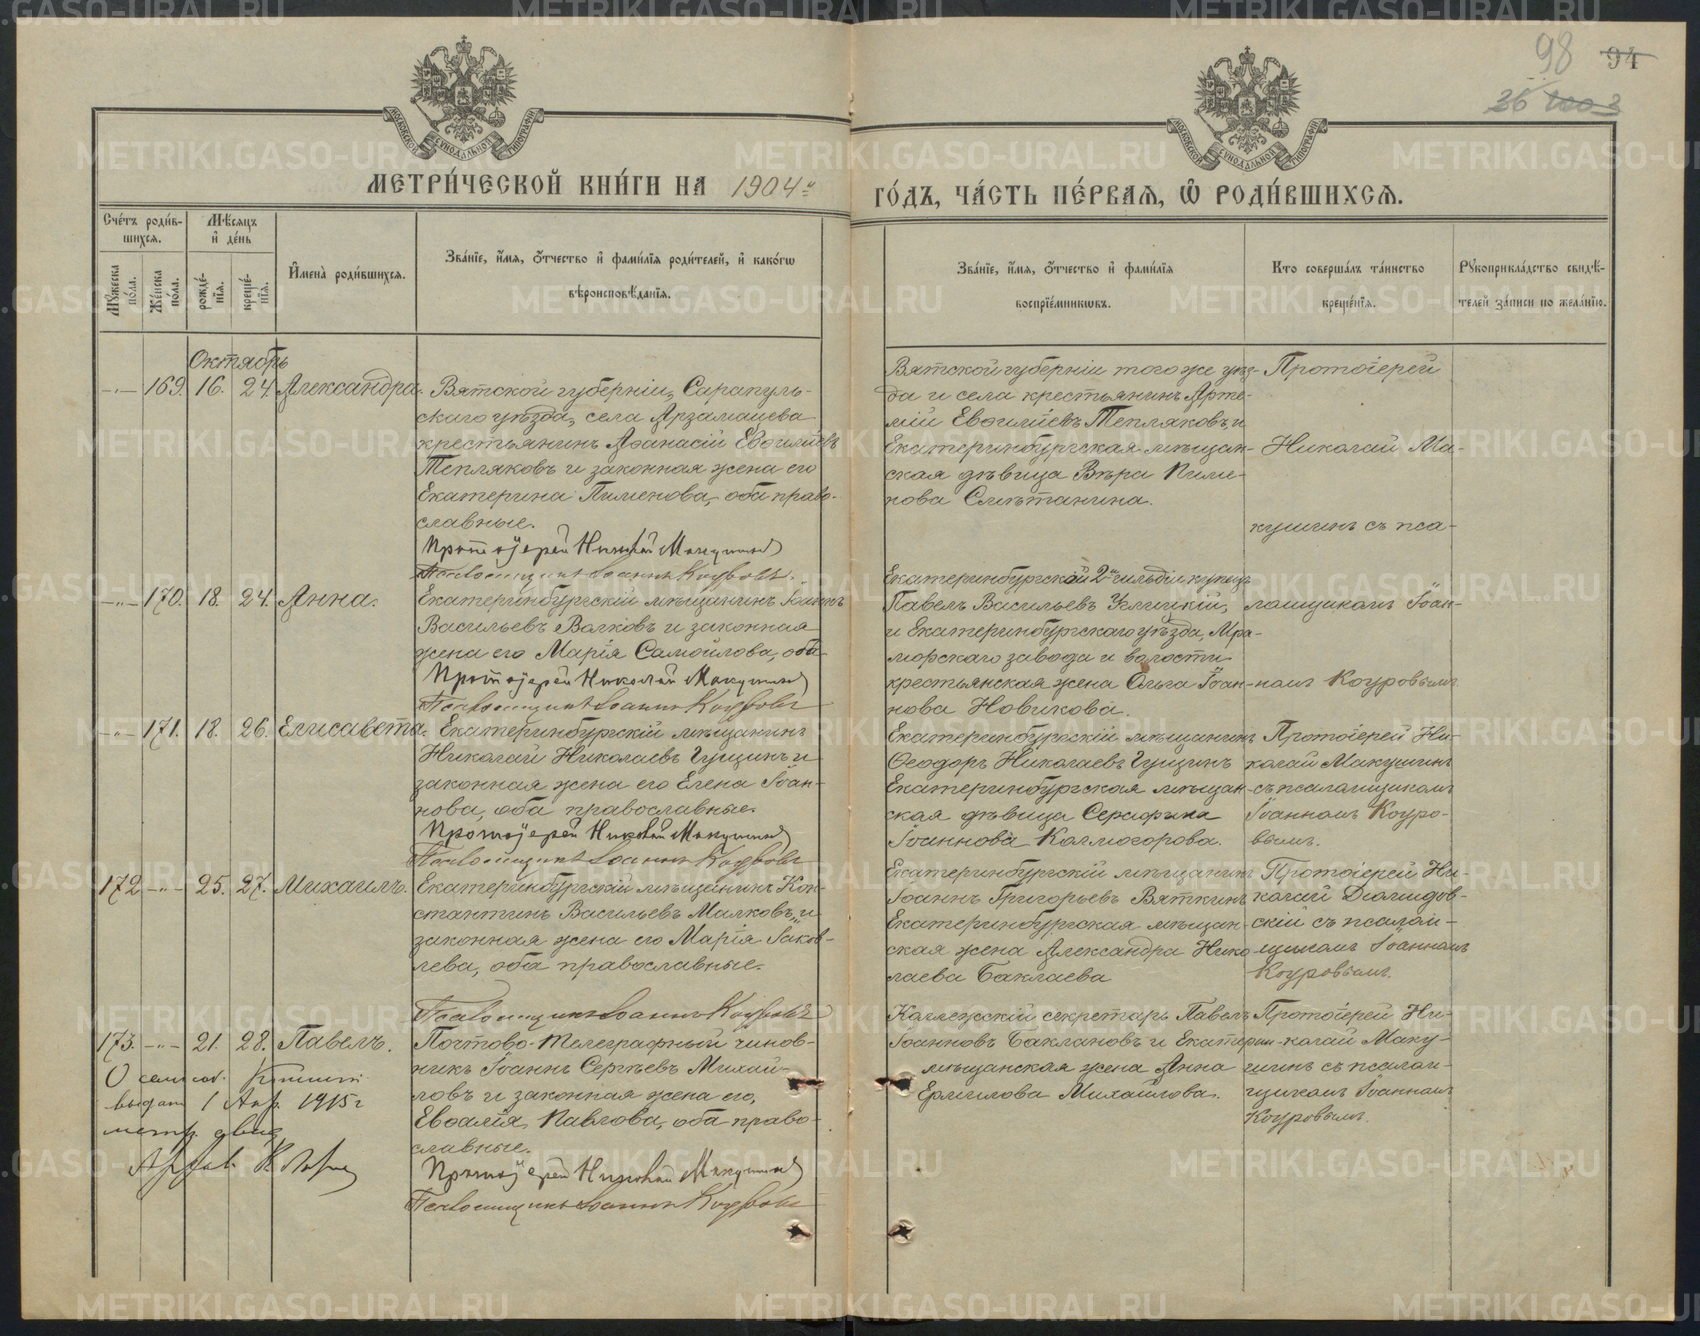 98 94
36
МОСКОВСКОЙ СѴНОДАЛЬНОЙ ТИПОГРАФІИ
МОСКОВСКОЙ СѴНОДАЛЬНОЙ ТИПОГРАФІИ
МЕТРИ́ЧЕСКОЙ КНИ́ГИ НА 1904й
ГО́ДЪ, ЧА́СТЬ ПЕ́РВАЯ, Ѽ РОДИ́ВШИХСЯ.
Сче́тъ роди́в-
шихся.
Мѣ́сяцъ
и де́нь
Мꙋ́жеска по́ла.
Же́нска по́ла.
рожде́-
нїя.
креще́-
нїя.
И҆мена̀ роди́вшихся.
Зва́нїе, и҆́мя, ѻ҆́тчество и҆ фами́лїя роди́телей, и҆ како́гѡ
вѣроисповѣ́данїя.
Зва́нїе, и҆́мя, ѻ҆́тчество и҆ фами́лїя
воспрїе́мникѡвъ.
Кто соверша́лъ та́инство
креще́нїя.
Рꙋкоприкла́дство свидѣ́-
телей за́писи по жела́нїю.
Октябрь
-"- 169. 16. 24. Александра.
Вятской губерніи, Сарапуль-
скаго уѣзда, села Арзамацева
крестьянинъ Аѳанасій Евѳиміевъ
Тепляковъ и законная жена его
Екатерина Пименова, оба право-
славные.
Протоіерей Николай Макушинъ
Псаломщикъ Іоаннъ Коуровъ.
Вятской губерніи того же уѣз-
да и села крестьянинъ Арте-
мій Евѳиміевъ Тепляковъ и
Екатеринбургская мѣщан-
ская дѣвица Вѣра Пиме-
нова Смѣтанина.
Протоіерей
Николай Ма-
кушинъ съ пса-
ломщикомъ Іоан-
номъ Коуровымъ.
-"- 170. 18. 24. Анна.
Екатеринбургскій мѣщанинъ Іоаннъ
Васильевъ Волковъ и законная
жена его Марія Самойлова, оба
Протоіерей Николай Макушинъ
Псаломщикъ Іоаннъ Коуровъ
Екатеринбургскій 2й гильдіи купецъ
Павелъ Васильевъ Углицкій,
и Екатеринбургскаго уѣзда, Мра-
морскаго завода и волости
крестьянская жена Ольга Іоан-
нова Новикова.
-"- 171. 18. 26. Елисавета.
Екатеринбургскій мѣщанинъ
Николай Николаевъ Гущинъ и
законная жена его Елена Іоан-
нова, оба православные.
Протоіерей Николай Макушинъ
Псаломщикъ Іоаннъ Коуровъ
Екатеринбургскій мѣщанинъ
Ѳеодоръ Николаевъ Гущинъ
Екатеринбургская мѣщан-
ская дѣвица Серафима
Іоаннова Колмогорова.
Протоіерей Ни-
колай Макушинъ
съ псаломщикомъ
Іоанномъ Коуро-
вымъ.
172 -"- 25. 27. Михаилъ.
Екатеринбургскій мѣщанинъ Кон-
стантинъ Васильевъ Малковъ, и
законная жена его Марія Іаков-
лева, оба православные.
Псаломщикъ Іоаннъ Коуровъ
Екатеринбургскій мѣщанинъ
Іоаннъ Григорьевъ Вяткинъ
Екатеринбургская мѣщан-
ская жена Александра Нико-
лаева Баклаева
Протоіерей Ни-
колай Діомидов-
скій съ псалом-
щикомъ Іоанномъ
Коуровымъ.
173. -"- 21. 28. Павелъ.
Почтово-Телеграфный чинов-
никъ Іоаннъ Сергѣевъ Михай-
ловъ и законная жена его,
Евѳалія Павлова, оба право-
славные.
Протоіерей Николай Макушинъ
Псаломщикъ Іоаннъ Коуровъ
Коллежскій секретарь Павелъ
Іоанновъ Баклановъ и Екатерин-
мѣщанская жена Анна
Ермилова Михайлова.
Протоіерей Ни-
колай Маку-
шинъ съ псалом-
щикомъ Іоанномъ
Коуровымъ.
О сем
выдано 1 Апр. 1915 г
метр. свид
METRIKI.GASO-URAL.RU